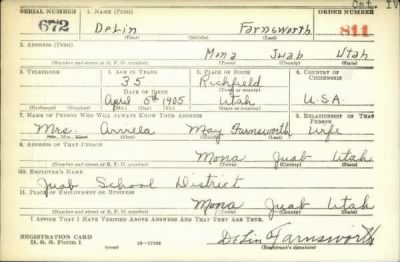 Cat. IV
SERIAL NUMBER 1. NAME (Print) ORDER NUMBER
672 DeLin Farnsworth 811
(First) (Middle) (Last)
2. ADDRESS (Print)
Mona Juab Utah
(Number and street or R. F. D. number) (Town) (County) (State)
3. TELEPHONE 4. AGE IN YEARS 5. PLACE OF BIRTH 6. COUNTRY OF CITIZENSHIP
35 Richfield
DATE OF BIRTH (Town or county)
April 5th 1905 Utah U.S.A.
(Exchange) (Number) (Mo.) (Day) (Yr.) (State or country)
7. NAME OF PERSON WHO WILL ALWAYS KNOW YOUR ADDRESS 8. RELATIONSHIP OF THAT PERSON
Mrs. May Farnsworth wife
(Mr., Mrs., Miss) (First) (Middle) (Last)
9. ADDRESS OF THAT PERSON
Mona Juab Utah
(Number and street or R. F. D. number) (Town) (County) (State)
10. EMPLOYER'S NAME
Juab School District
11. PLACE OF EMPLOYMENT OR BUSINESS
Mona Juab Utah
(Number and street or R. F. D. number) (Town) (County) (State)
I AFFIRM THAT I HAVE VERIFIED ABOVE ANSWERS AND THAT THEY ARE TRUE.
REGISTRATION CARD
D. S. S. Form 1 (over) 16-17105 DeLin Farnsworth
(Registrant's signature)